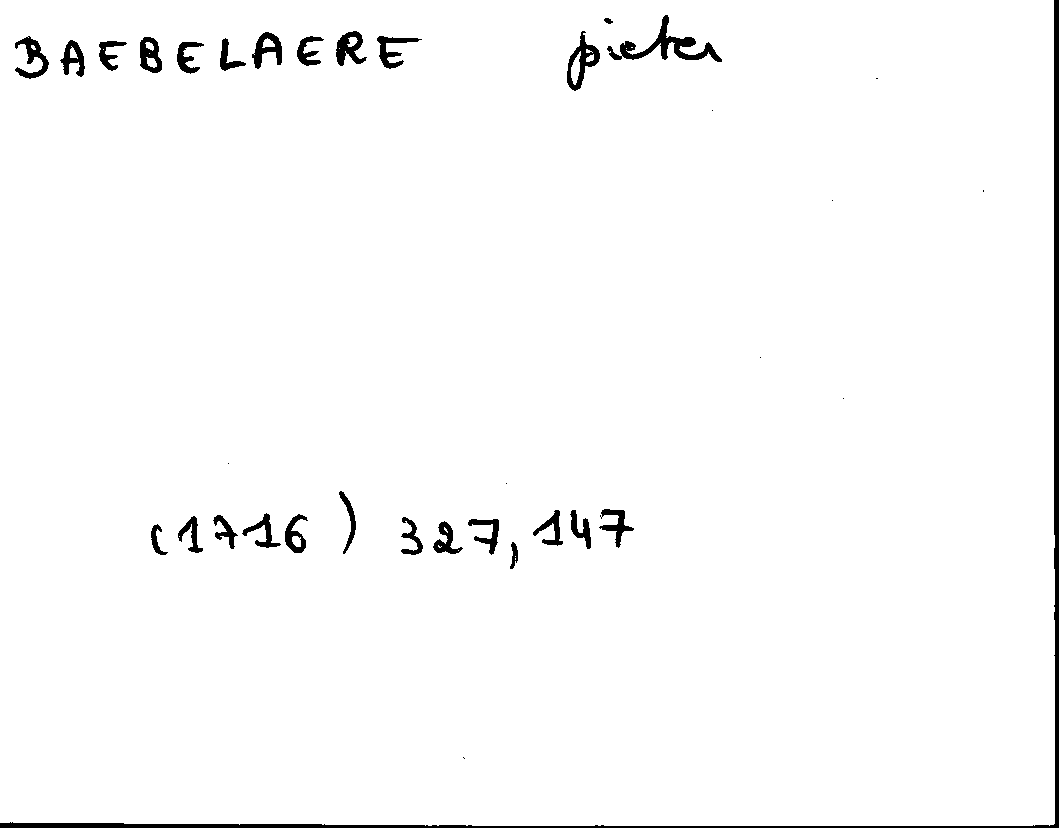 BAEBELAERE pieter
(1716) 327, 147